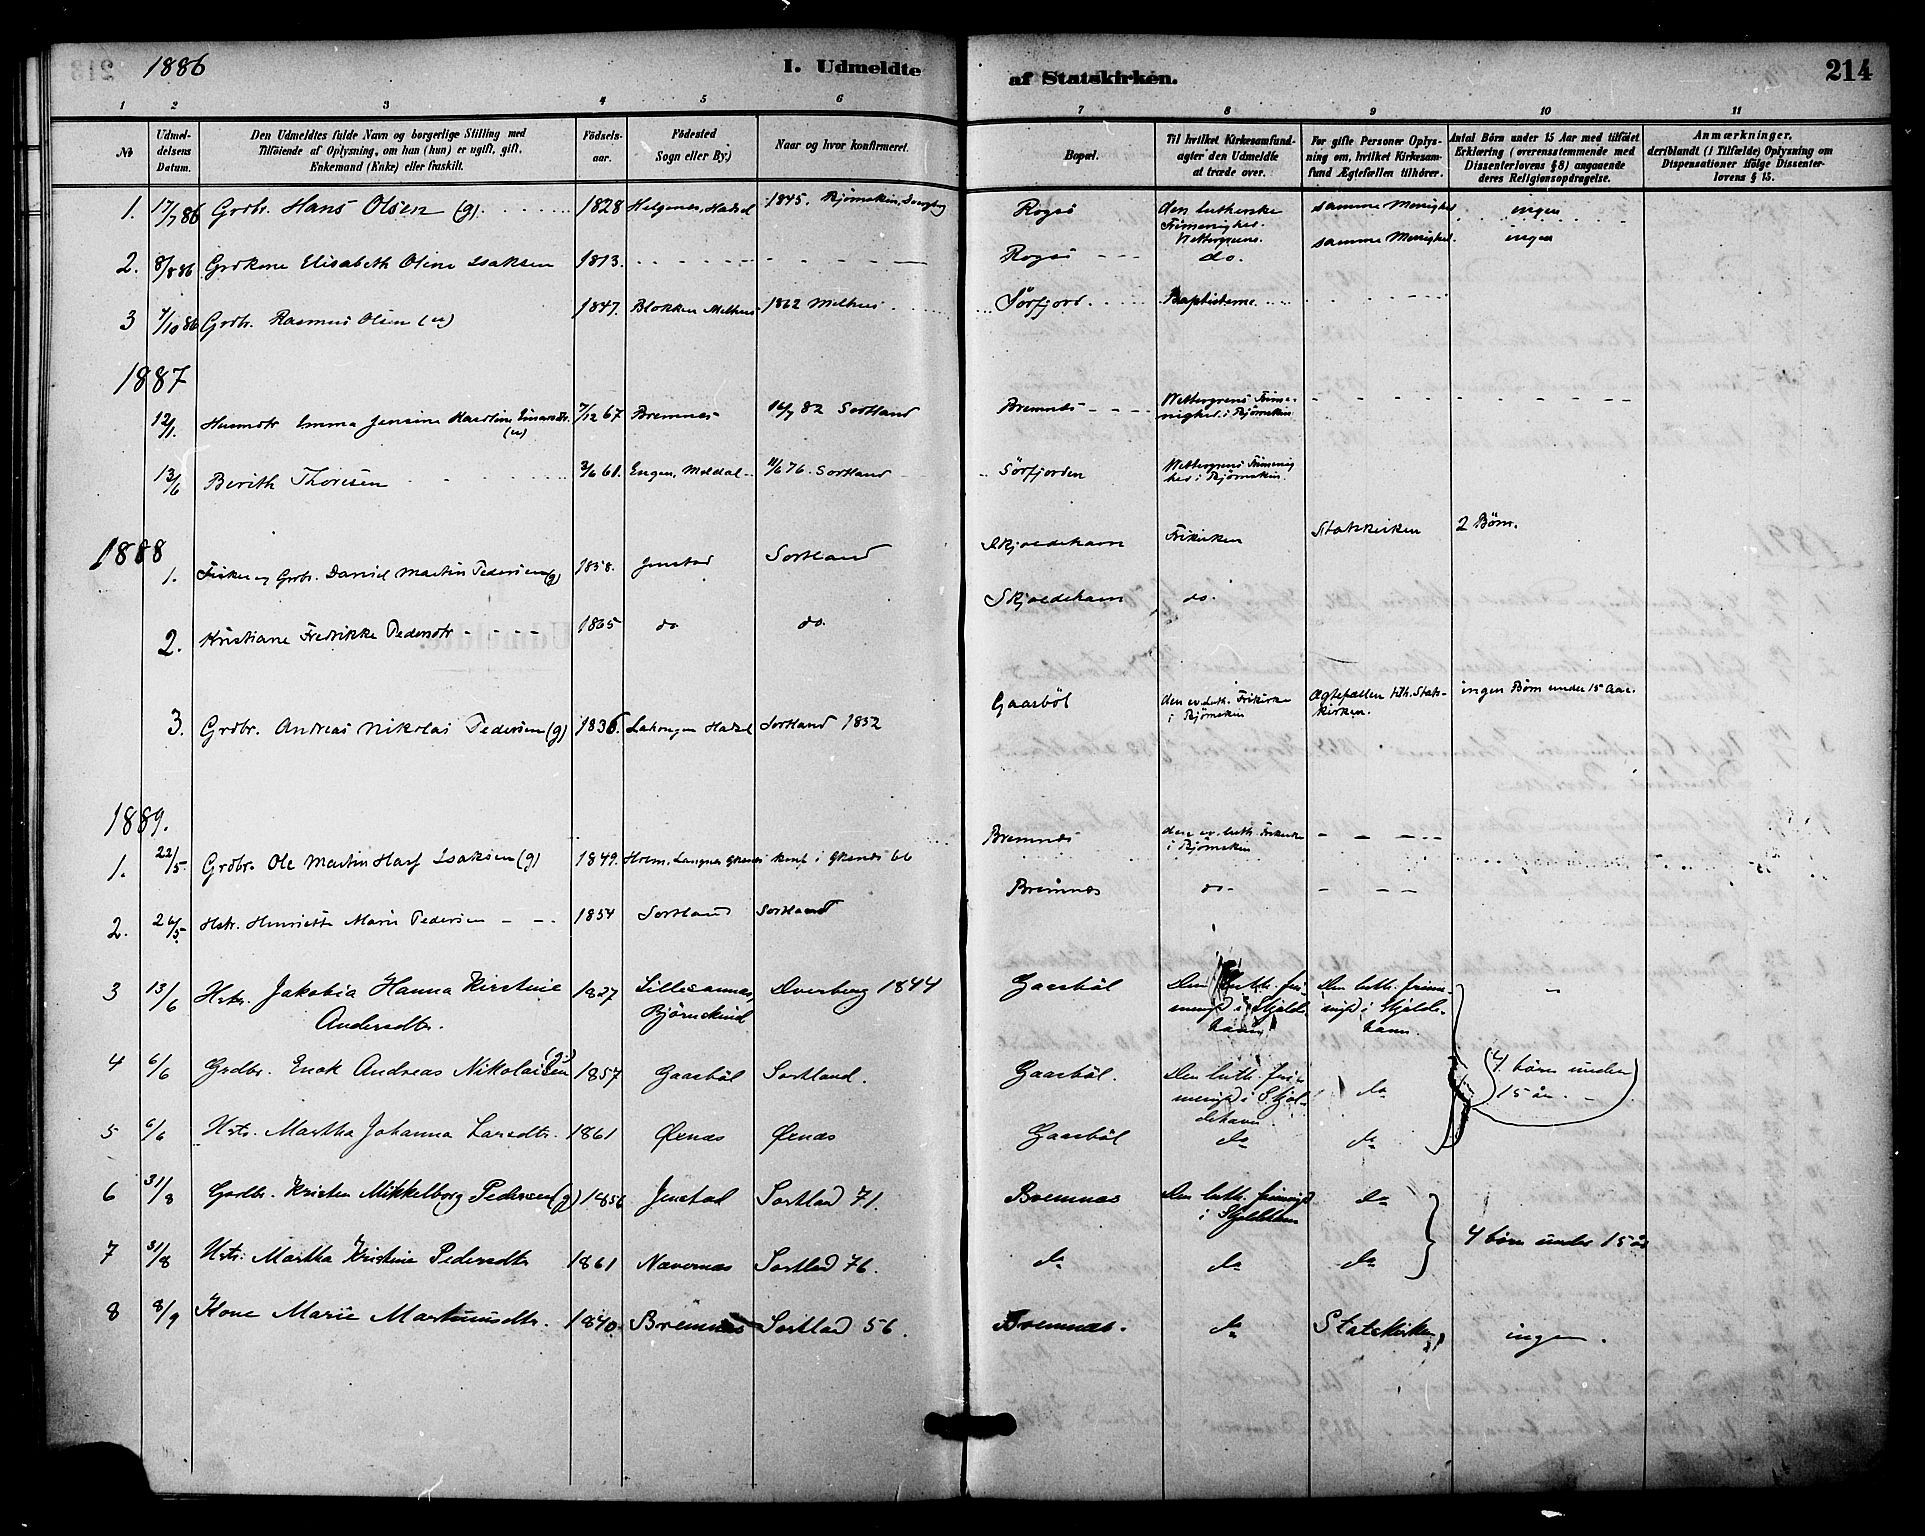 1886
I. Udmeldte af Statskirken.
214
1 2 3 4 5 6 7 8 9 10 11
No
Udmel-
delsens
Datum.
Den Udmeldtes fulde Navn og borgerlige Stilling med
Tilföiende af Oplysning, om han (hun) er ugift, gift,
Enkemand (Enke) eller fraskilt.
Födsels-
aar.
Födested
Sogn eller By.)
Naar og hvor konfirmeret.
Bopæl.
Til hvilket Kirkesamfund-
agter den Udmeldte
at træde over.
For gifte Personer Oplys-
ning om, hvilket Kirkesam-
fund Ægtefællen tilhører.
Antal Börn under 15 Aar med tilföiet
Erklæring (overensstemmende med
Dissenterlovens § 8) angaaende
deres Religionsopdragelse.
Anmærkninger,
deriblandt (i Tilfælde) Oplysning om
Dispensationer ifölge Dissenter-
lovens § 15.
1. 17/7 86 Grdbr. Hans Olsen (g) 1828 Helgenes, Hadsel 1845. Bjørnskin, Rogsö den lutherske samme Menighed ingen
Frimenighed.
Wettergrens. samme Menighed. ingen
2. 8/8 86 Grdkone Elisabeth Oline Isaksen 1813. Rogsö do.
3 4/10 86 Grdbr. Rasmus Olsen (u) 1847. Blokken Melhus 1862 Melhus Sörfjord Baptisterne
1887
12/1. Husmdtr Emma Jensine (u) 7/12 67 Bremnes 16/7 82 Sortland Bremnes Wettergrens Frime-
nighed i Bjørnskin
13/6 Berith Thoresen 3/6 61. Engen, Meldal 11/6 76. Sortland Sörfjorden Wettergrens Frimenig
hed i Bjørnskin
1888
1. Fisker og Grdbr. Daniel Martin Pedersen (g) 1858. Jenstad Sortland Skjoldehavn Frikirken Statskirken 2 Børn.
2. Kristiane Fredrikke Pedersdtr 1865 do do. Skjoldehavn do.
3. Grdbr. Andreas Nikolai Pedersen (g) 1836 Hadsel Sortland 1852 Gaasböl den ev. Luth. Frikirke Ægtefællen tilh. Stats- ingen Børn under 15 Aar.
i Bjørnskin kirken.
1889.
1. 22/5. Grdbr. Ole Martin Isaksen (g) 1849. konf. i 66 Bremnes den ev. luth. Frikirke
i Bjørnskin
2. 26/5. Hstr. Henriette Marie Pedersen 1854 Sortland Sortland Bremnes do
3 13/6 Hstr. Jakobia Hanna Kirstine 1827 Dverberg 1844 Gaasböl Den luth. fri- Den luth. frime-
Andersdtr. Björnskind menigh. i Skjolde- nigh. i Skjolde-
havn havn.
4 6/6 Grdbr. Enok Andreas Nikolaisen (g) 1857 Gaasböl Sortland. Gaasböl. Den luth. fri- do (4 börn under
menigh. i Skjol- 15 år.)
dehavn
5 6/6 Hstr. Martha Johanna Larsdtr. 1861 Øxnæs Øxnæs Gaasböl do do
6 31/8 Gardbr. Kristen Mikkelborg Pedersen (g) 1856 Jenstad Sortland 71. Bremnæs Den luth. frimenigh do
i Skjoldehavn
7 31/8 Hstr. Martha Kristine Pedersdtr 1861 Nævernæs Sortland 76. do do do 4 börn under 15 år
8 8/9 Kone Marie Martinusdtr. 1840. Bremnæs Sortland 56. Bremnæs. do Statskirken ingen.